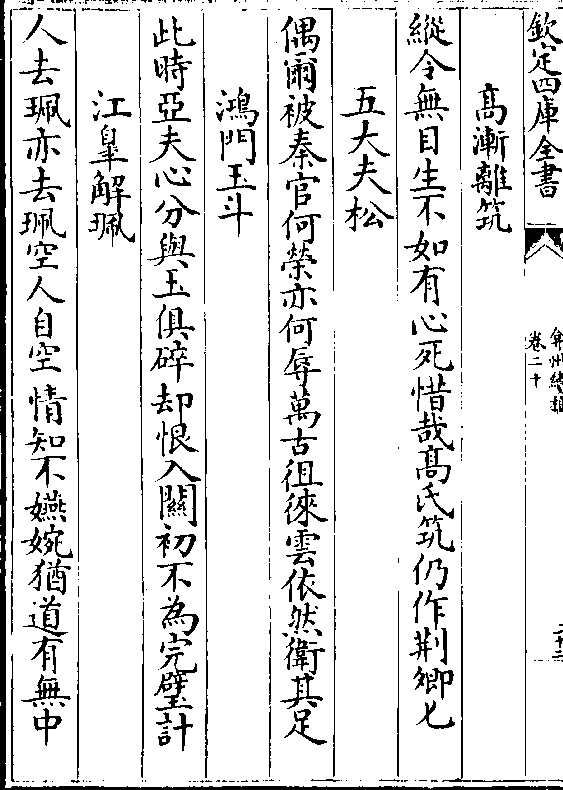 欽定四庫全書
弇州續稿
卷二十
高漸離筑
縱令無目生不如有心死惜哉高氏筑仍作荆卿匕
五大夫松
偶爾被秦官何榮亦何辱萬古徂徠雲依然衛其足
鴻門玉斗
此時亞夫心分與玉俱碎却恨入關初不為完璧計
江皐解珮
人去珮亦去珮空人自空情知不嬿婉猶道有無中